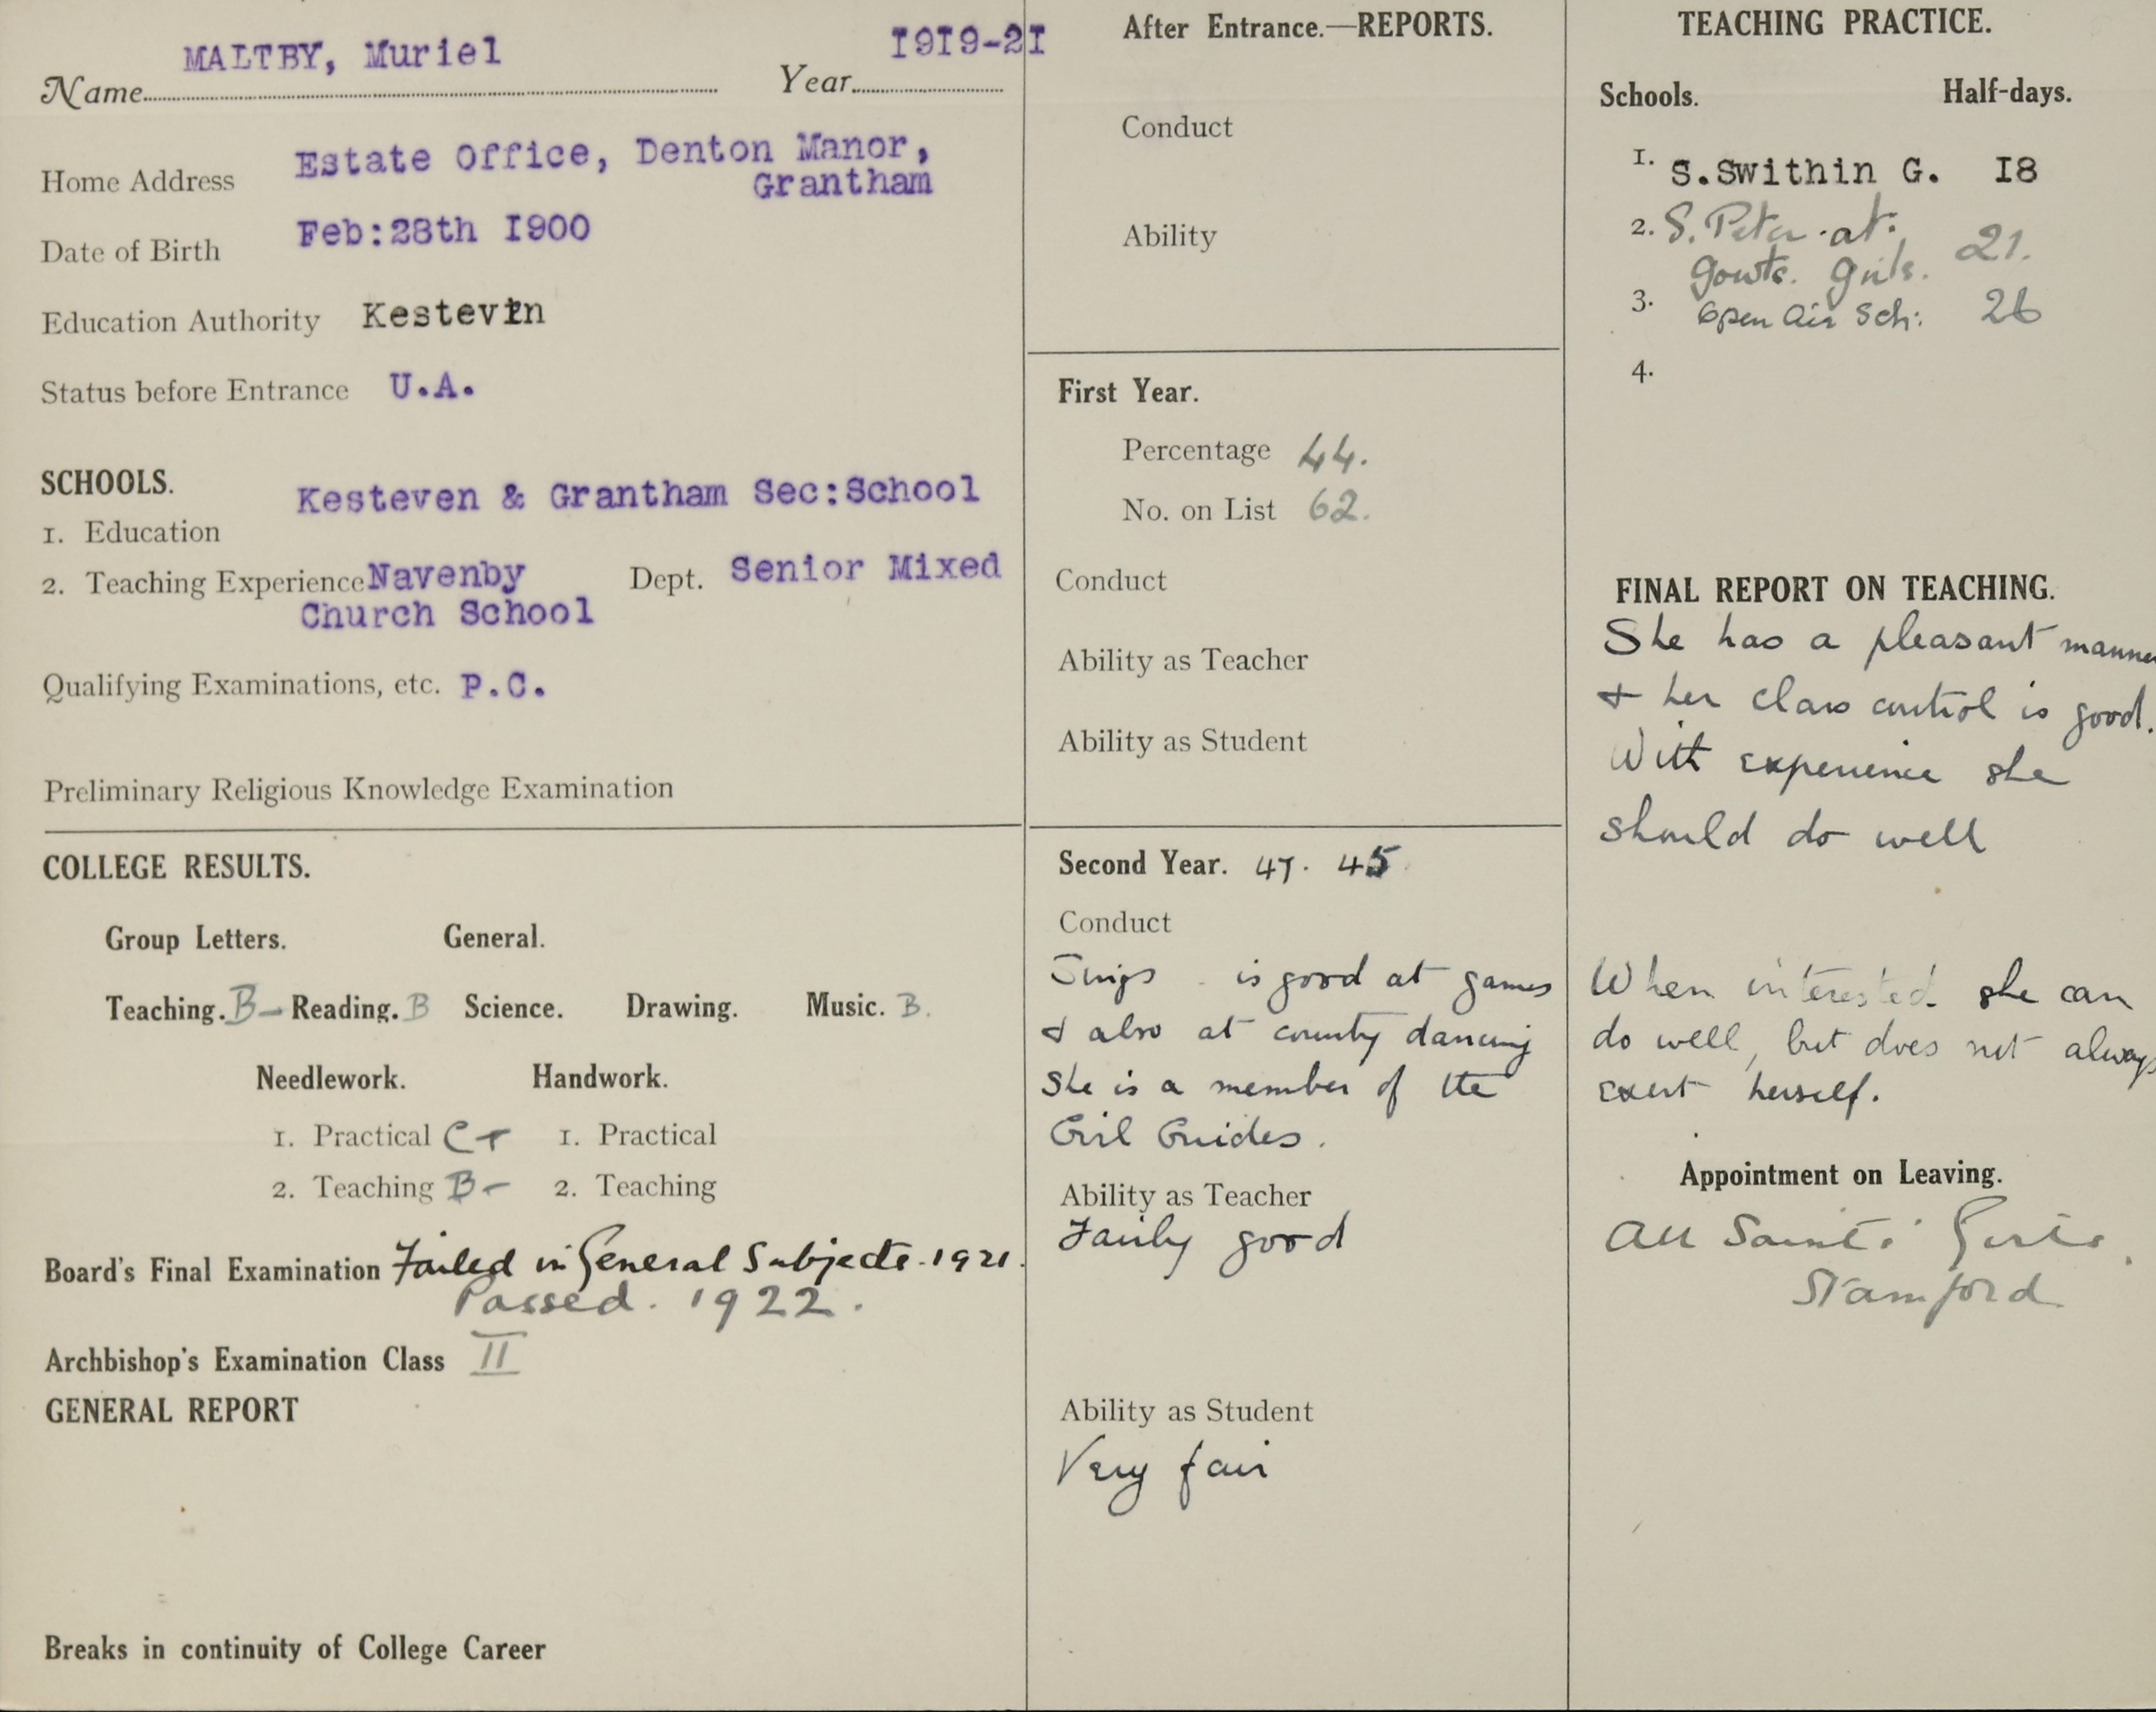 MALTBY, Muriel
Name
1919-21
Year
Home Address
Estate Office, Denton Manor,
Grantham
Date of Birth
Feb:28th 1900
Education Authority Kesteven
Status before Entrance U.A.
SCHOOLS.
1. Education
Kesteven & Grantham Sec:School
2. Teaching Experience Navenby
Church School
Dept. Senior Mixed
Qualifying Examinations, etc. P.C.
Preliminary Religious Knowledge Examination
COLLEGE RESULTS.
Group Letters. General.
Teaching. B- Reading. B Science. Drawing. Music. B.
Needlework. Handwork.
1. Practical C+ 1. Practical
2. Teaching B- 2. Teaching
Board's Final Examination Failed in General Subjects. 1921.
Passed. 1922.
Archbishop's Examination Class II
GENERAL REPORT
Breaks in continuity of College Career
After Entrance.—REPORTS.
Conduct
Ability
First Year.
Percentage 44.
No. on List 62.
Conduct
Ability as Teacher
Ability as Student
Second Year. 47. 45
Conduct
Sings - is good at games
& also at country dancing
She is a member of the
Girl Guides.
Ability as Teacher
Fairly good
Ability as Student
Very fair
TEACHING PRACTICE.
Schools. Half-days.
1. S.Swithin G. 18
2. S. Peter at:
Gowts. Girls. 21.
3. Open Air Sch: 26
4.
FINAL REPORT ON TEACHING.
She has a pleasant manner
& her class control is good.
With experience she
should do well
When interested she can
do well, but does not always
exert herself.
Appointment on Leaving.
All Saints' Girls.
Stamford